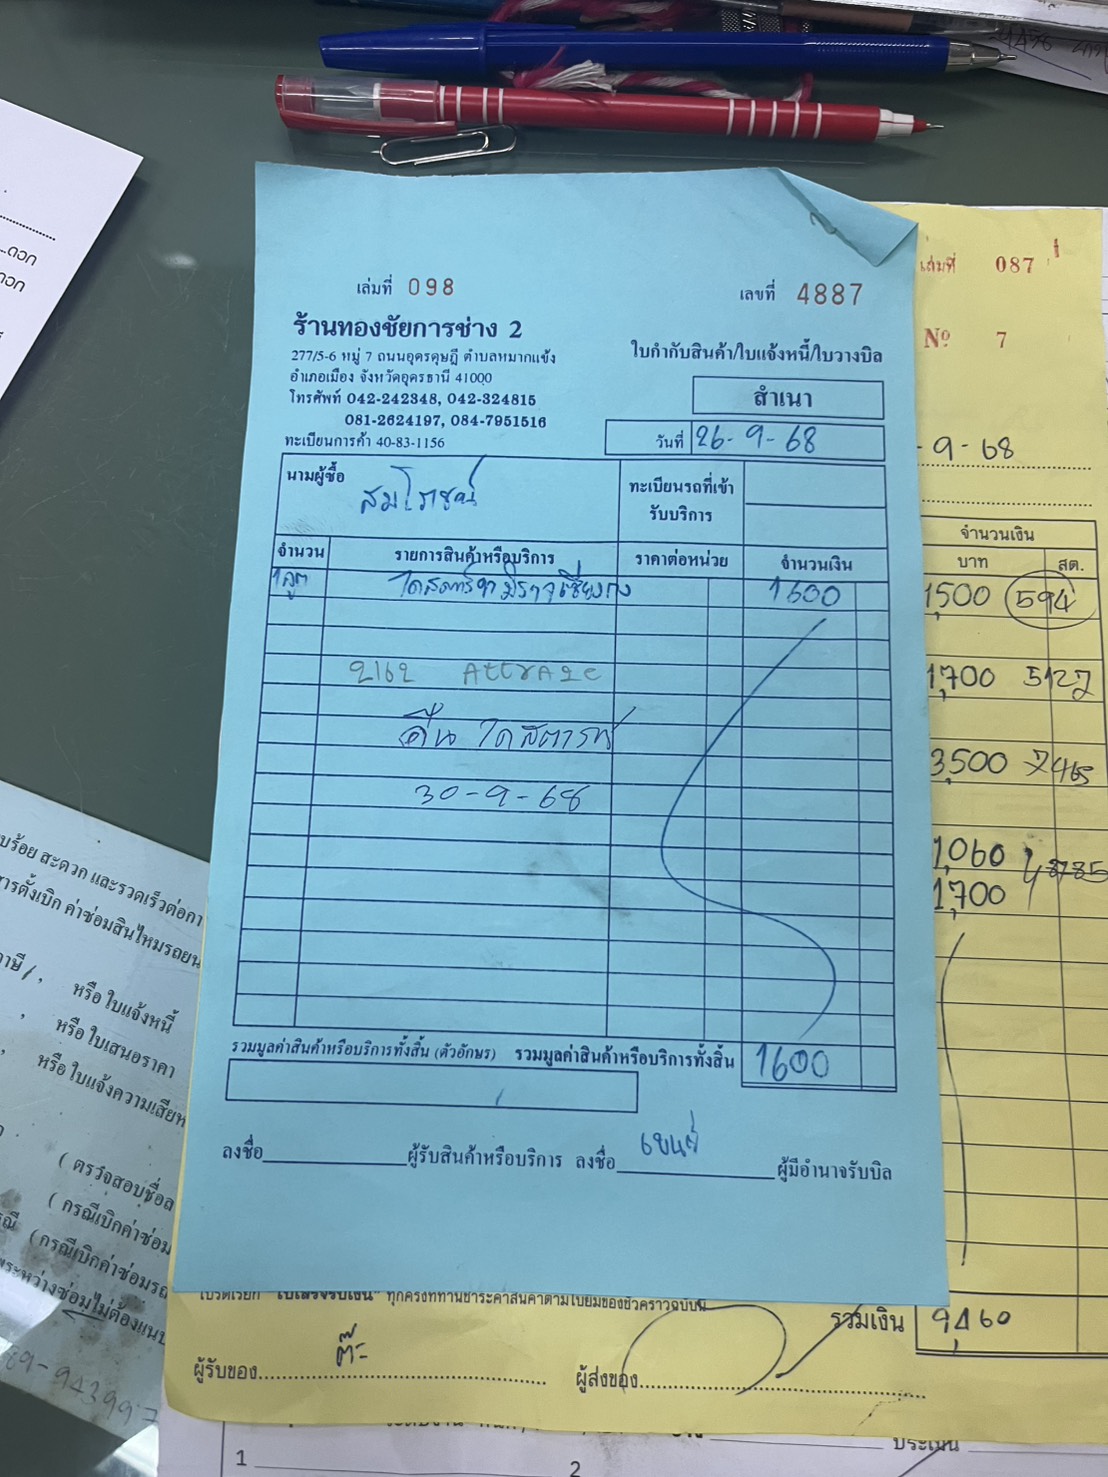 เล่มที่ 098
เลขที่ 4887
ร้านทองชัยการช่าง 2
277/5-6 หมู่ 7 ถนนอุดรดุษฎี ตำบลหมากแข้ง
อำเภอเมือง จังหวัดอุดรธานี 41000
โทรศัพท์ 042-242348, 042-324815
081-2624197, 084-7951516
ทะเบียนการค้า 40-83-1156
ใบกำกับสินค้า/ใบแจ้งหนี้/ใบวางบิล
สำเนา
วันที่ 26-9-68
นามผู้ซื้อ สมโภชน์
ทะเบียนรถที่เข้า
รับบริการ
จำนวน รายการสินค้าหรือบริการ ราคาต่อหน่วย จำนวนเงิน
1ลูก ไดสตาร์ท มิราจ เชียงกง 1600
2162 Attrage
คืน ไดสตาร์ท
30-9-68
รวมมูลค่าสินค้าหรือบริการทั้งสิ้น (ตัวอักษร) รวมมูลค่าสินค้าหรือบริการทั้งสิ้น 1600
ลงชื่อ ผู้รับสินค้าหรือบริการ ลงชื่อ ผู้มีอำนาจรับบิล
เล่มที่ 087
Nº 7
-9-68
จำนวนเงิน
บาท สต.
1,500 594
1,700 5127
3,500 7465
1,060
1,700
ทุกครั้งที่ท่านชำระค่าสินค้าตามใบยืมของชั่วคราวฉบับนี้
รวมเงิน 9,460
ผู้รับของ ต๊ะ
ผู้ส่งของ
บร้อย สะดวก และรวดเร็วต่อกา
ารตั้งเบิก ค่าซ่อมสินไหมรถยน
หรือ ใบแจ้งหนี้
หรือ ใบเสนอราคา
หรือ ใบแจ้งความเสียห
( ตรวจสอบชื่อล
( กรณีเบิกค่าซ่อม
(กรณีเบิกค่าซ่อมรถ
ระหว่างซ่อมไม่ต้องแนบ
89-943997
ดอก
1
2
ประเมิน